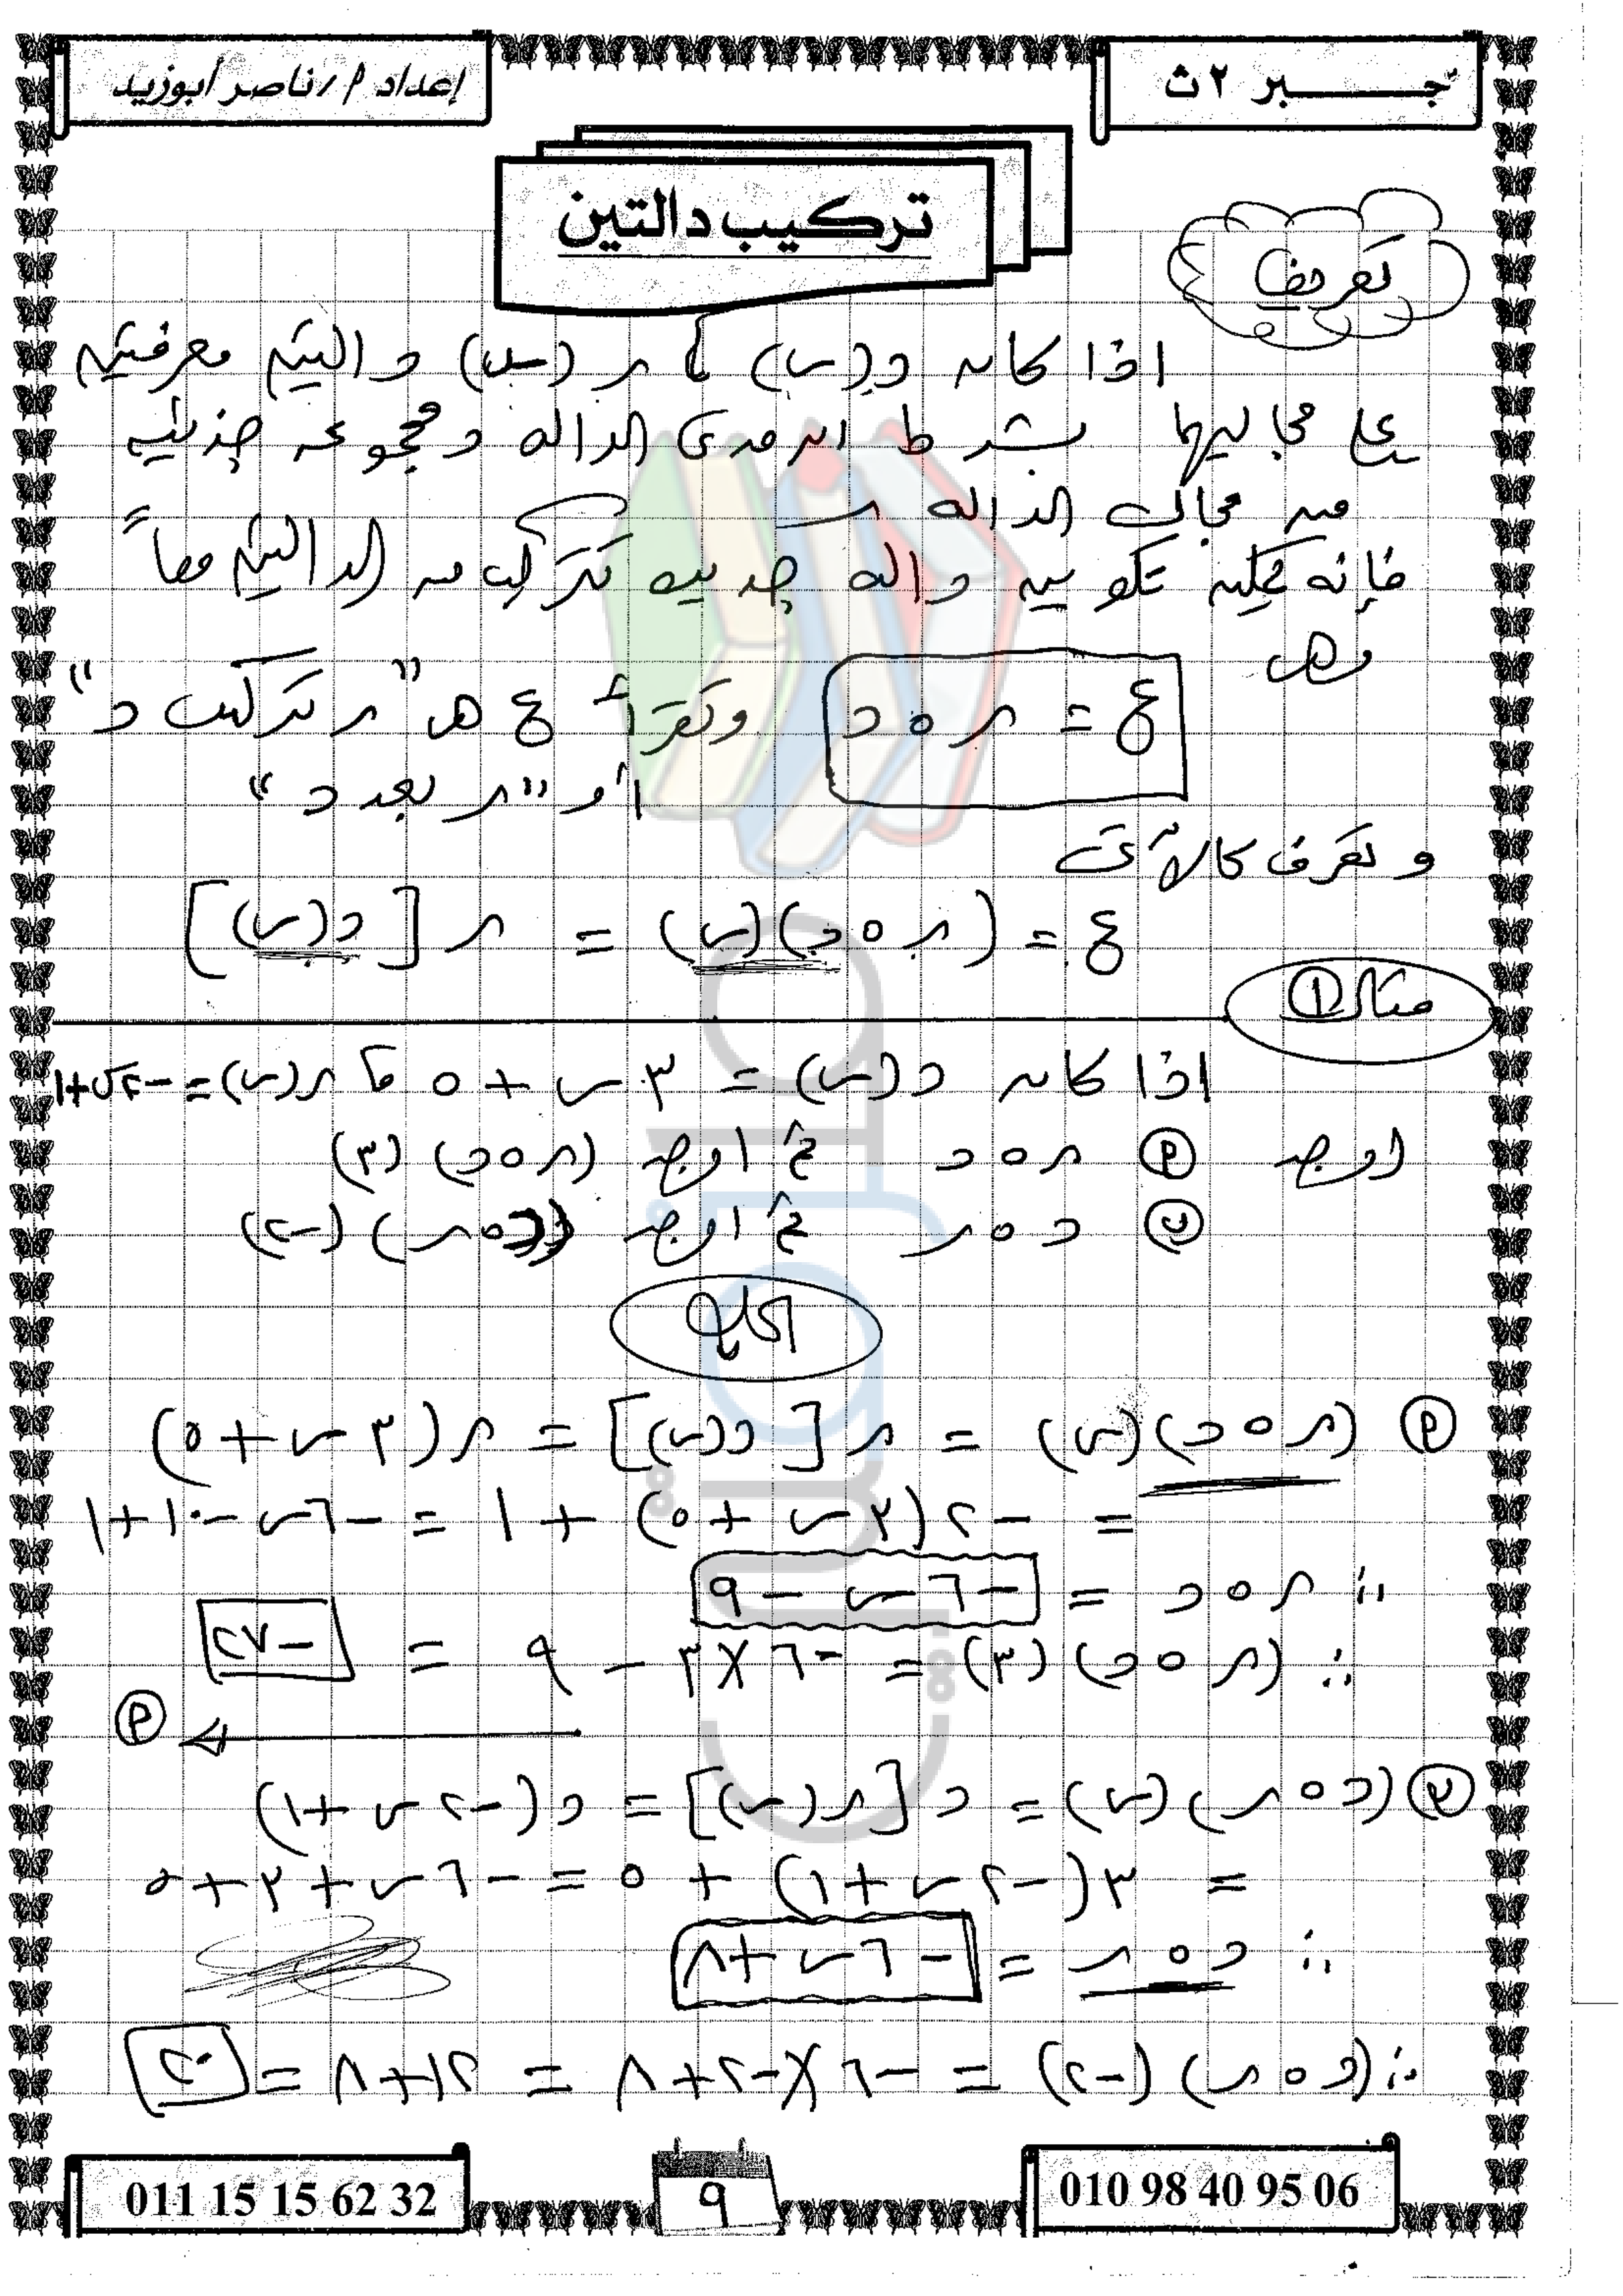 جبر ٢ ث
إعداد م / ناصر أبوزيد
تركيب دالتين
تعريف
اذا كانه د(س) ، ر(س) دالتين معرفتين
على مجاليها بشرط ان مدى الداله د مجموعه جزئيه
من مجال الداله ر
فإنه يمكن تكوين داله جديده تتركب من الدالتين معاً
وهى
ع = ر ٥ د وتقرأ ع هى "ر تركيب د"
أو "ر بعد د"
و تعرف كالآتى
ع = (ر ٥ د)(س) = ر [د(س)]
مثال ١
اذا كان د(س) = ٣س + ٥ ، ر(س) = -٢س+١
اوجد (أ) ر ٥ د ثم اوجد (ر ٥ د)(٣)
(ب) د ٥ ر ثم اوجد (د ٥ ر)(-٢)
الحل
(أ) (ر ٥ د)(س) = ر [د(س)] = ر(٣س + ٥)
= -٢(٣س + ٥) + ١ = -٦س - ١٠ + ١
∴ ر ٥ د = -٦س - ٩
∴ (ر ٥ د)(٣) = -٦×٣ - ٩ = -٢٧
(أ)
(ب) (د ٥ ر)(س) = د [ر(س)] = د(-٢س+١)
= ٣(-٢س+١) + ٥ = -٦س + ٣ + ٥
∴ د ٥ ر = -٦س + ٨
∴ (د ٥ ر)(-٢) = -٦×-٢ + ٨ = ١٢+٨ = ٢٠
010 98 40 95 06
٩
011 15 15 62 32